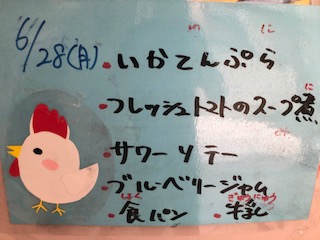 6/28(月)
・いかてんぷら
・フレッシュトマトのスープ煮
に
・サワーソテー
・ブルーベリージャム
しょく ぎゅうにゅう
・食パン ・牛乳